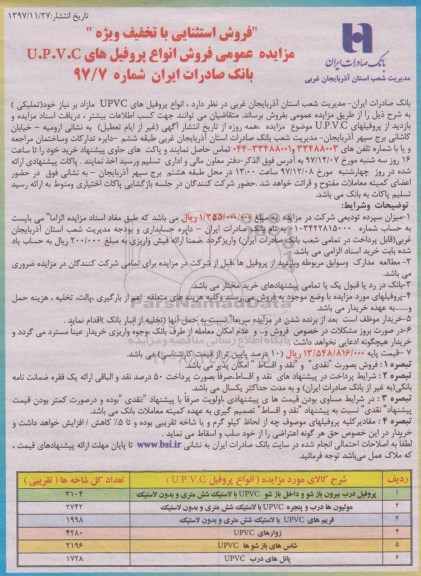 تاریخ انتشار: ۱۳۹۷/۱۱/۲۷
"فروش استثنایی با تخفیف ویژه"
مزایده عمومی فروش انواع پروفیل های U.P.V.C
بانک صادرات ایران شماره ۹۷/۷
بانک صادرات ایران
مدیریت شعب استان آذربایجان غربی
بانک صادرات ایران- مدیریت شعب استان آذربایجان غربی در نظر دارد ، انواع پروفیل های UPVC مازاد بر نیاز خود(تملیکی )
به شرح ذیل را از طریق مزایده عمومی بفروش برساند. متقاضیان می توانند جهت کسب اطلاعات بیشتر ، دریافت اسناد مزایده و
بازدید از پروفیلهای U.P.V.C موضوع مزایده ،همه روزه از تاریخ انتشار آگهی (غیر از ایام تعطیل) به نشانی ارومیه – خیابان
کاشانی برج سپهر آذربایجان- مدیریت شعب بانک صادرات استان آذربایجان غربی طبقه ششم -دایره تدارکات وساختمان مراجعه
و یا با شماره تلفن های ۳۳۴۸۸۰۰۳ و ۳۳۴۸۸۰۰۱-۰۴۴ تماس حاصل نمایند و پاکت های حاوی پیشنهاد خرید خود را تا ساعت
۱۴ روز سه شنبه مورخ ۹۷/۱۲/۰۷ به آدرس فوق الذکر-دفتر معاون مالی و اداری تسلیم ورسید اخذ نمایند . پاکات پیشنهادی ارائه
شده در روز چهارشنبه مورخ ۹۷/۱۲/۰۸ ساعت ۱۲:۰۰ در محل طبقه هشتم برج سپهر آذربایجان – به نشانی فوق در حضور
اعضای کمیته معاملات مفتوح و قرائت خواهد شد .حضور شرکت کنندگان در جلسه بازگشایی پاکات اختیاری ومنوط به ارائه رسید
تسلیم پاکات به بانک می باشد.
توضیحات وشرایط:
۱-میزان سپرده تودیعی شرکت در مزایده به مبلغ ۱/۳۵۵/۰۰۰/۰۰۰ ریال می باشد که طبق مفاد اسناد مزایده الزاما" می بایست
به حساب شماره به نام بانک صادرات ایران – دایره حسابداری و بودجه مدیریت شعب استان آذربایجان
غربی(قابل پرداخت در تمامی شعب بانک صادرات ایران) واریزگردد.ضمنا ارائه فیش واریزی به مبلغ ۲۰۰/۰۰۰ ریال به حساب یاد
شده بابت خرید اسناد الزامی می باشد.
۲-مطالعه مدارک وسوابق مربوطه وبازدید از پروفیل ها ،قبل از شرکت در مزایده برای تمامی شرکت کنندگان در مزایده ضروری
می باشد.
۳-بانک در رد یا قبول یک یا تمامی پیشنهادهای خرید مختار می باشد.
۴-پروفیلهای مورد مزایده با وضع موجود به فروش می رسند وکلیه هزینه های متعلقه اعم از بارگیری ،پالت، تخلیه ، هزینه حمل
و.....به عهده خریدار می باشد.
۵-خریدار موظف است بعد از برنده شدن در مزایده سریعا" نسبت به حمل آنها (تخلیه از انبار بانک )اقدام نماید.
۶-در صورت بروز مشکلات در خصوص فروش و... و عدم امکان معامله از طرف بانک ،وجوه واریزی خریدار عیناً مسترد می گردد و
خریدار هیچگونه ادعایی نخواهد داشت
۷ –قیمت پایه ۱۳/۵۴۸/۸۱۶/۰۰۰ ریال (۱۰ درصد پایین تر از قیمت کارشناسی) می باشد.
تبصره ۱ : فروش بصورت "نقدی" و "نقد و اقساط" امکان پذیر می باشد.
تبصره ۲ : شرایط پرداخت در پیشنهاد های نقد و اقساط،صرفاً بصورت پرداخت ۵۰ درصد نقد و الباقی ارائه یک فقره ضمانت نامه
بانکی(به غیر از بانک صادرات ایران) و به مدت حداکثر یکسال می باشد.
تبصره ۳ : در شرایط مساوی بودن قیمت های پیشنهادی ،اولویت صرفاً با پیشنهاد "نقدی "بوده و درصورت کمتر بودن قیمت
پیشنهاد"نقدی" نسبت به پیشنهاد "نقد و اقساط" تصمیم گیری به عهده کمیته معاملات بانک می باشد.
تبصره ۴ : مقادیرکلیه پروفیلهای موصوف چه از لحاظ کیلو گرم و یا شاخه تقریبی بوده و تا ۵٪ کاهش / افزایش خواهد داشت و
خریدار در این خصوص حق هر گونه اعتراضی را از خود سلب و اسقاط می نماید.
لطفا به اصلاحات احتمالی انجام شده در سایت بانک صادرات ایران به نشانی www.bsi.ir تا پایان مهلت ارائه پیشنهادهای قیمت ،
که ملاک عمل می‌باشد توجه فرمائید.
ردیف شرح کالای مورد مزایده ( انواع پروفیل U.P.V.C ) تعداد کل شاخه ها ( تقریبی )
۱ پروفیل درب بیرون باز شو و داخل باز شو UPVC با لاستیک شش متری و بدون لاستیک ۳۱۰۴
۲ مولیون ها درب و پنجره UPVC با لاستیک شش متری و بدون لاستیک ۲۷۴۲
۳ فریم های UPVC با لاستیک شش متری و بدون لاستیک ۱۹۹۸
۴ زوارهای UPVC ۴۲۸۰
۵ شاس های باز شو ها UPVC ۲۱۹۶
۶ پانل های درب UPVC ۱۷۳۸
ParsNamadData
پایگاه اطلاع رسانی مناقصه و مزایده